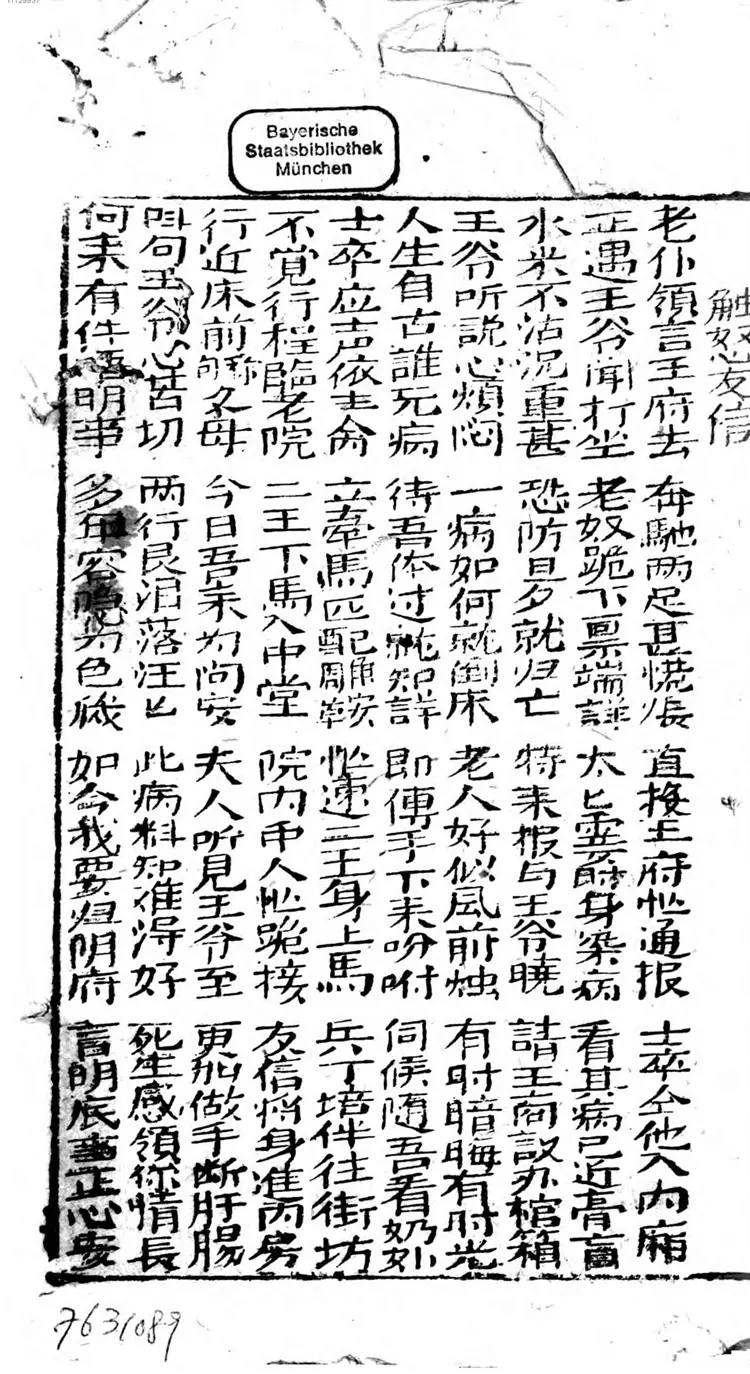 Bayerische
Staatsbibliothek
München
触怒友信
老仆領言王府去 奔馳两足甚慌張 直接王府忙通报 士卒仝他入内廂
正遇王爷闻打坐 老奴跪下禀端詳 太匕灵身染病 看其病已近膏盲
水米不沾沉重甚 恐防旦夕就归亡 特来报与王爷曉 請王商议办棺箱
王爷所説心煩闷 一病如何就倒床 老人好似風前烛 有时暗晦有时光
人生自古誰死病 待吾体过就知詳 即傳手下来吩咐 伺候随吾看奶奶
士卒应声依主命 立牽馬匹配雕鞍 忙速二王身上馬 兵丁培伴往街坊
不覚行程臨老院 二王下馬入中堂 院内中人忙跪接 友信将身進内房
行近床前嘶父母 今日吾来为问安 夫人听見王爷至 更加做手断肝腸
叫句王爷心苦切 两行良泪落汪匕 此病料知难得好 死生感領你情長
何来有件明事 多年容隐为色 如今我要归阴府 言明底事正心安
7631089